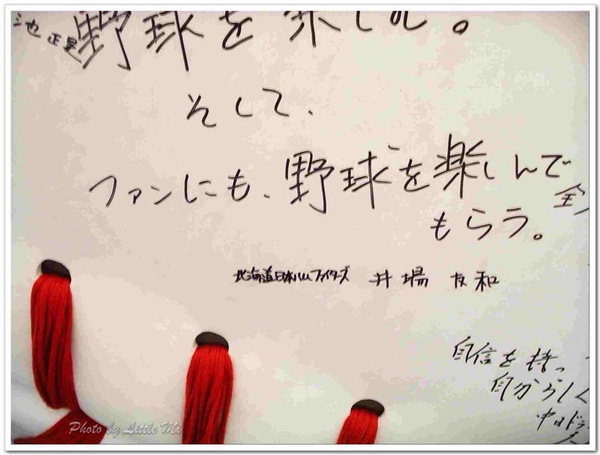 池 正晃
野球を楽しむ。
そして、
ファンにも、野球を楽しんで
もらう。
北海道日本ハムファイターズ 井場 友和
自信を持っ
自分らしく
中日ドラ
Photo by Little Me